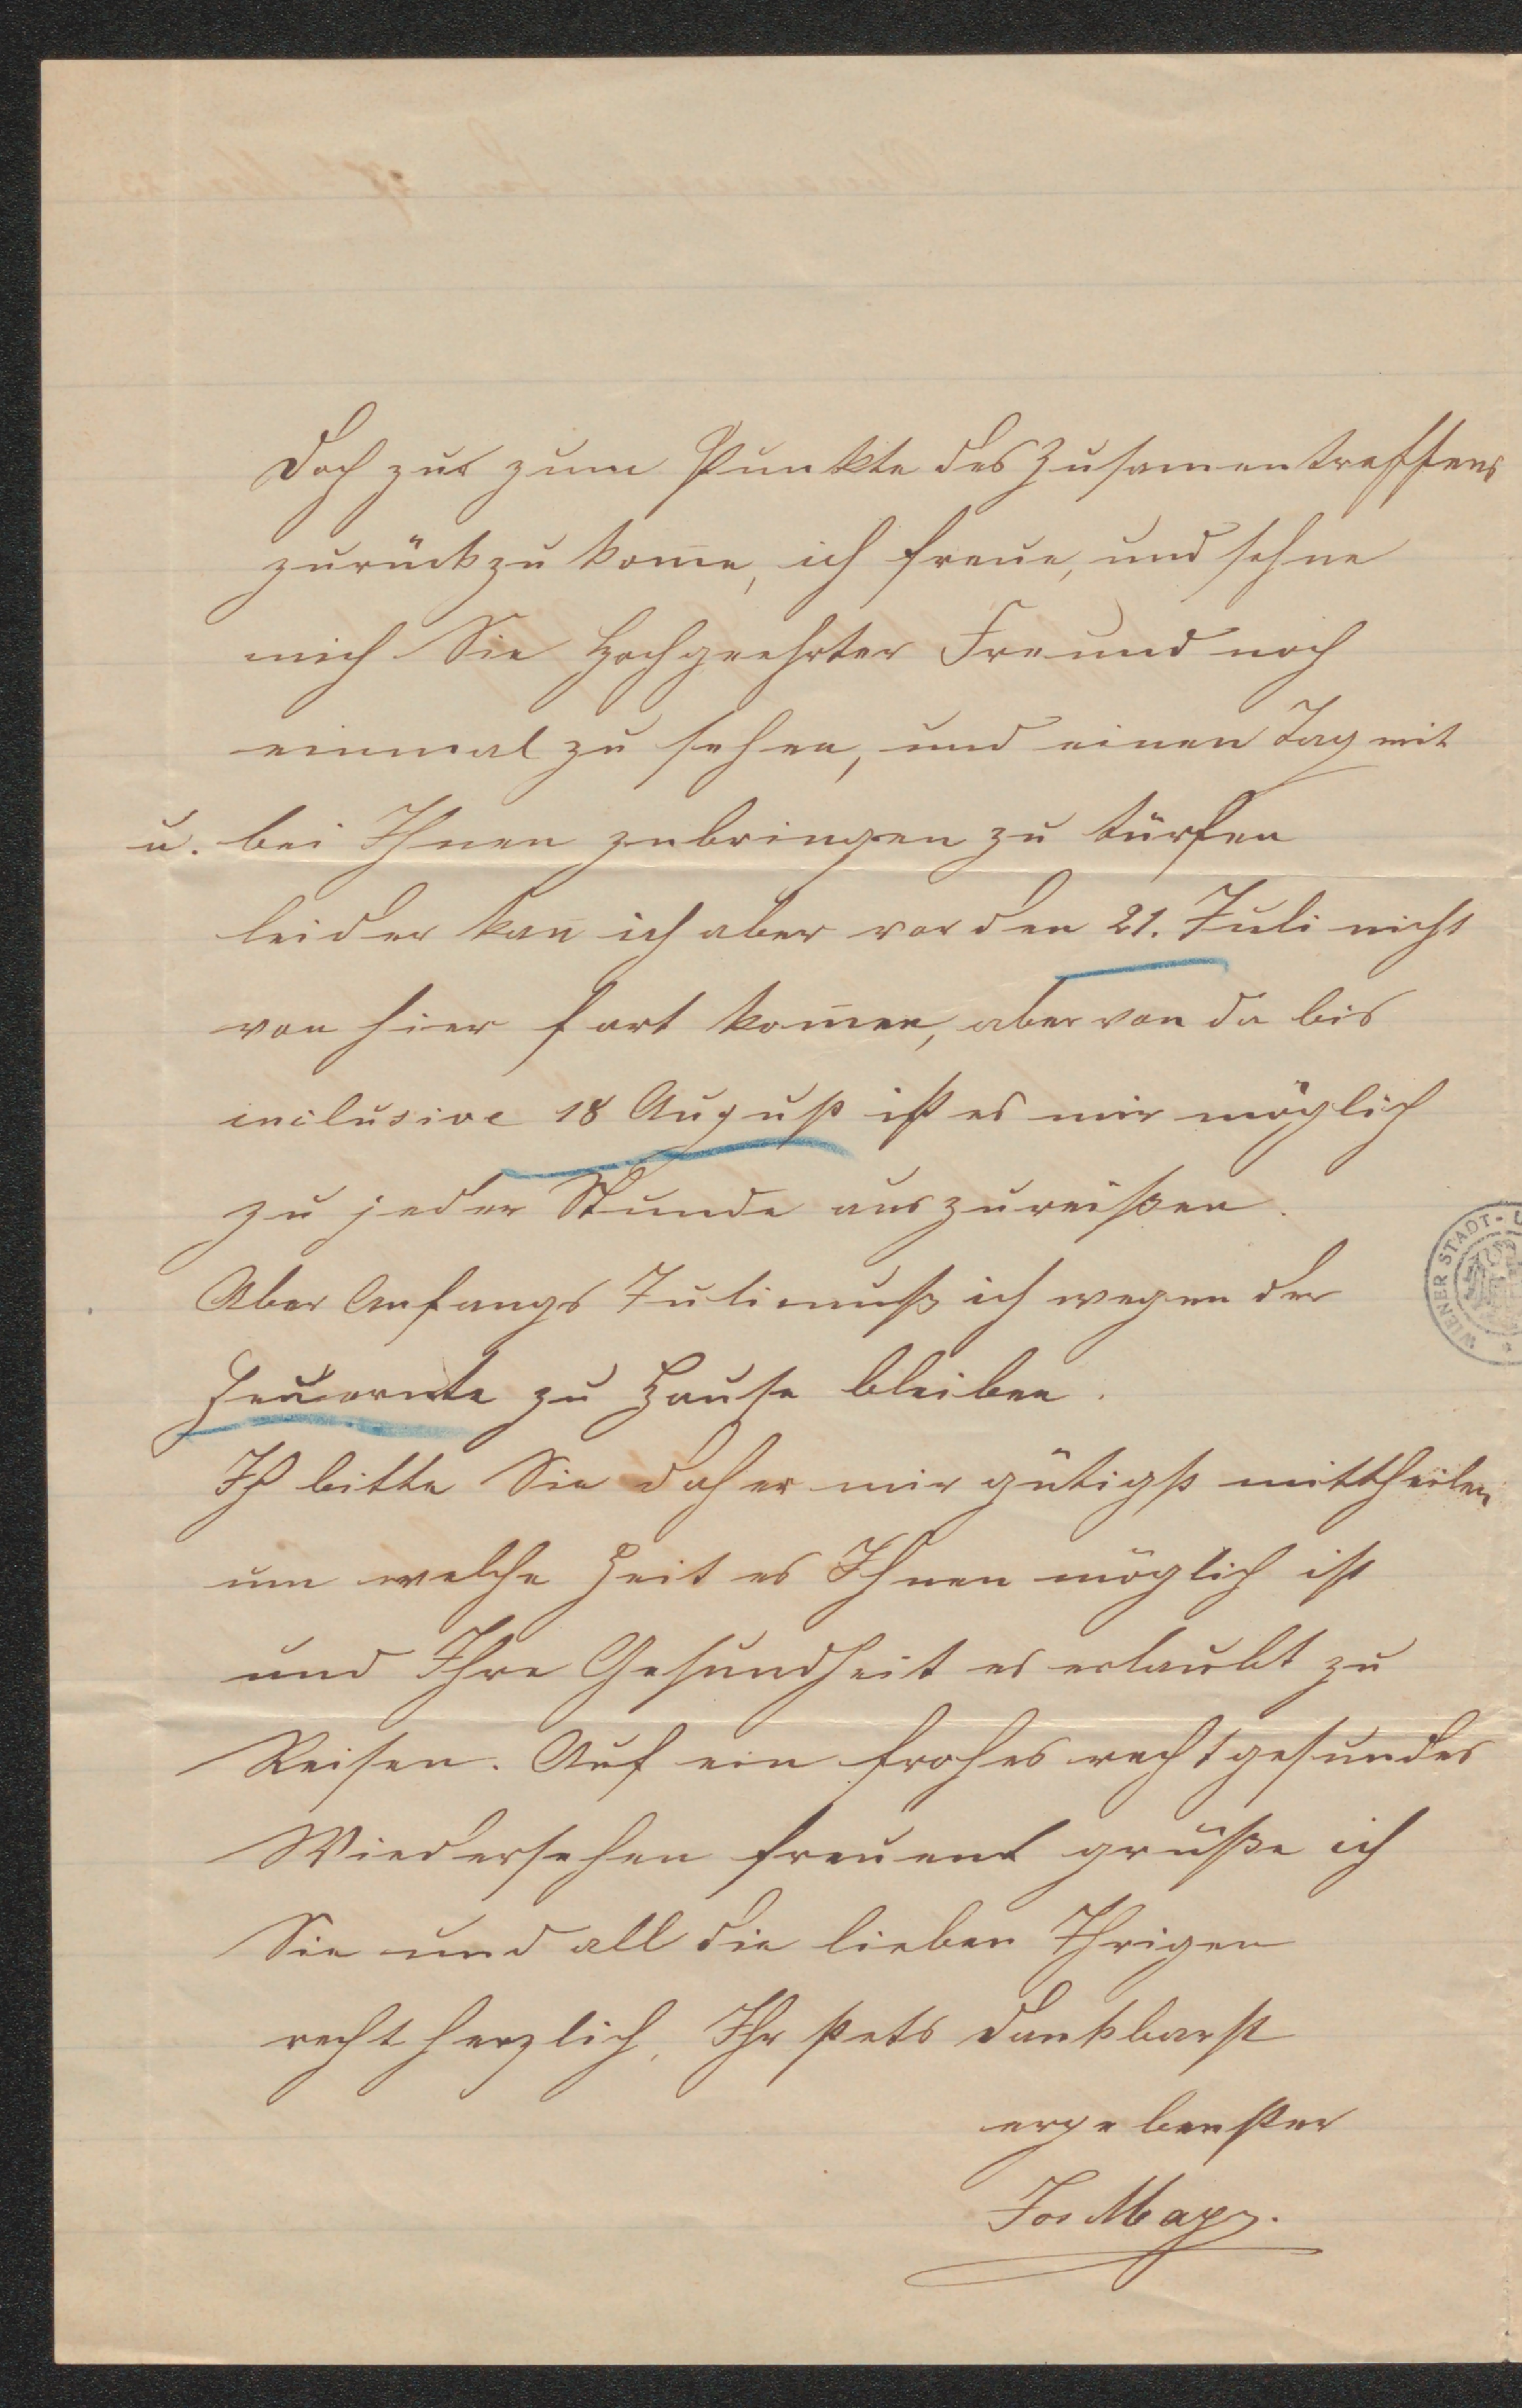 Doch zur zum Punkte des Zusamentreffens
zurückzu kom̅e, ich freue, und sehne
mich Sie Hochgeehrter Freund noch
einmal zu sehen, und einen Tag mit
u. bei Ihnen zubringen zu türfen
leider kan̅ ich aber vor den 21. Juli nicht
von hier fort kom̅en, aber von da bis
inclusive 18 August ist es mir möglich
zu jeder Stunde auszureißen.
Aber Anfangs Juli muß ich wegen der
Heuernte zu Hause bleiben.
Ich bitte Sie daher mir gütigst mittheilen
um welche Zeit es Ihnen möglich ist
und Ihre Gesundheit es erlaubt zu
Reisen. Auf ein frohes recht gesundes
Wiedersehen freuent grüße ich
Sie und all die lieben Ihrigen
recht herzlich, Ihr stets dankbarst
ergebenster
Jos Mayr.
WIENER STADT-